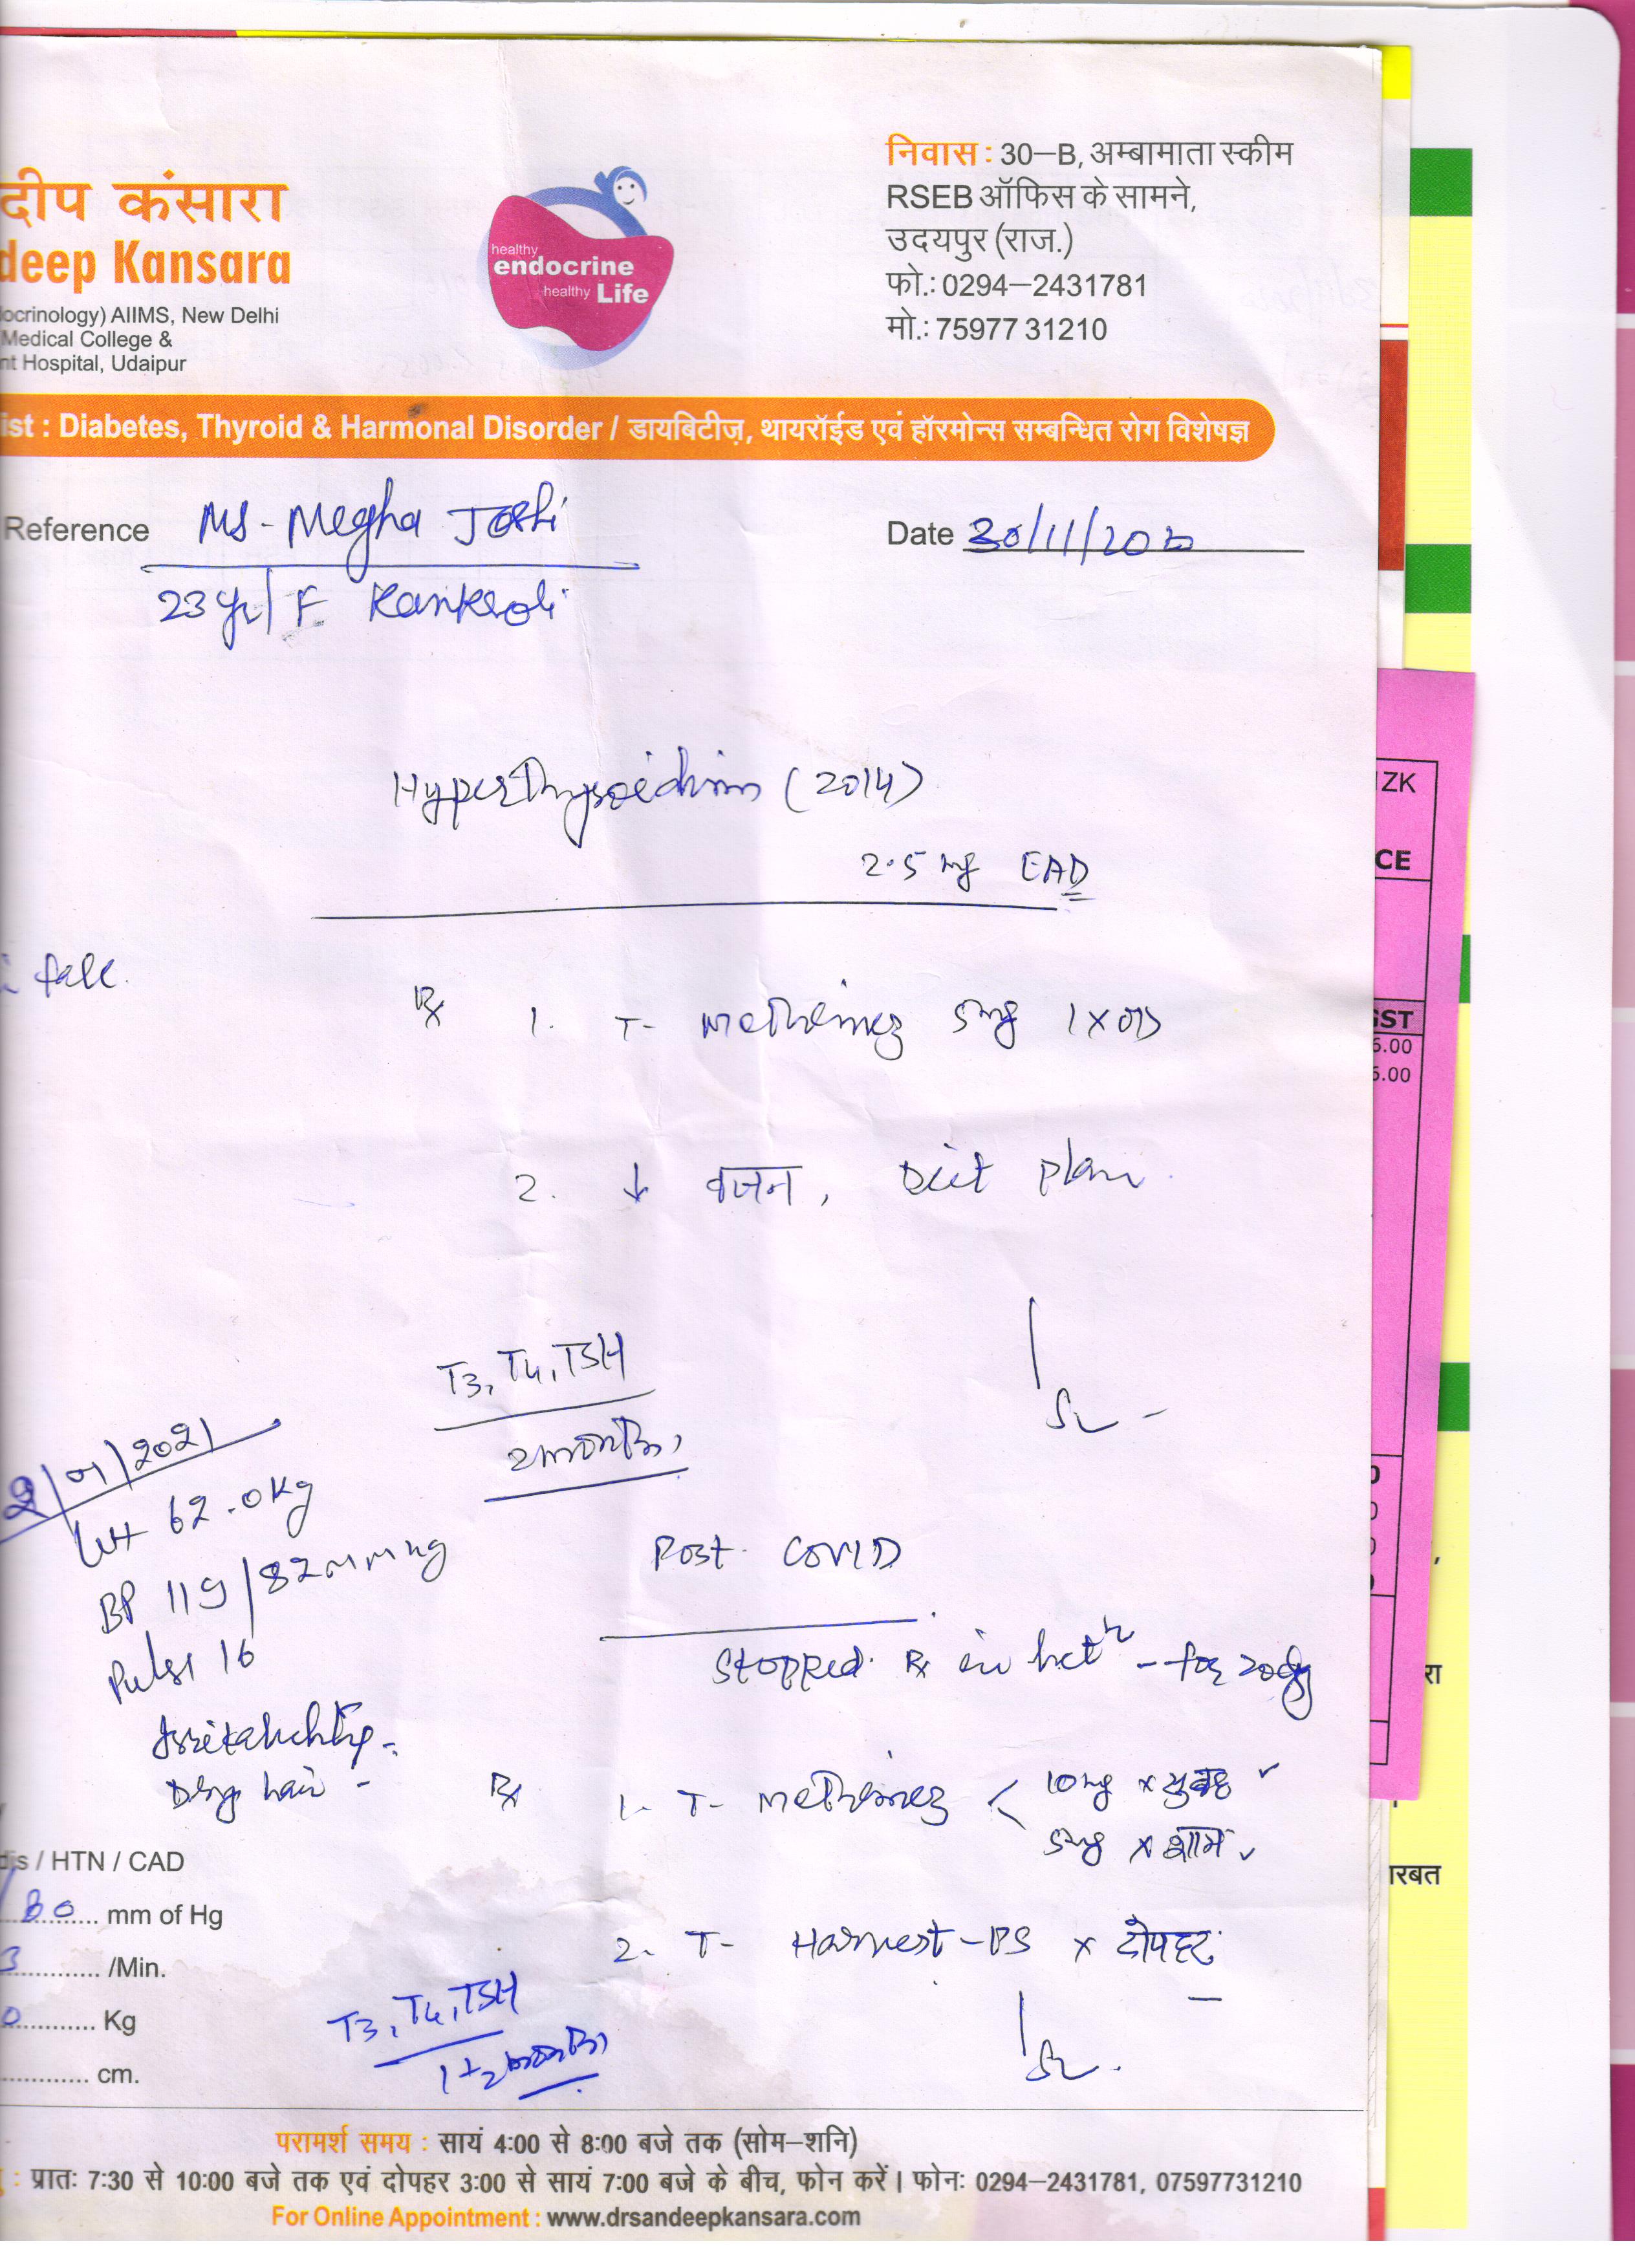 निवास : 30–B, अम्बामाता स्कीम
RSEB ऑफिस के सामने,
उदयपुर (राज.)
फो.: 0294–2431781
मो.: 75977 31210
दीप कंसारा
deep Kansara
ocrinology) AIIMS, New Delhi
Medical College &
nt Hospital, Udaipur
healthy
endocrine
healthy Life
ist : Diabetes, Thyroid & Harmonal Disorder / डायबिटीज़, थायरॉईड एवं हॉरमोन्स सम्बन्धित रोग विशेषज्ञ
Reference Ms - Megha Joshi
Date 30/11/2020
23 yr / F Kankroli
Hyperthyroidism (2014)
2.5 mg EAD
fall.
Rx 1. T- Methimez 5mg 1 X OD
2. ↓ वजन, Diet plan
T3, T4, TSH
2 months
/01/2021
Wt 62.0 Kg
BP 119/82 mmHg
Pulse 16
Irritability -
Post COVID
Stopped Rx in - for 20 days
Rx 1. T- Methimez < 10mg x सुबह
5mg x शाम
2. T- Harvest-PS x दोपहर
dis / HTN / CAD
/80 mm of Hg
3 /Min.
0 Kg
cm.
T3, T4, TSH
months
परामर्श समय : सायं 4:00 से 8:00 बजे तक (सोम–शनि)
: प्रातः 7:30 से 10:00 बजे तक एवं दोपहर 3:00 से सायं 7:00 बजे के बीच, फोन करें। फोनः 0294–2431781, 07597731210
For Online Appointment : www.drsandeepkansara.com
ZK
CE
GST
6.00
6.00
रा
रबत